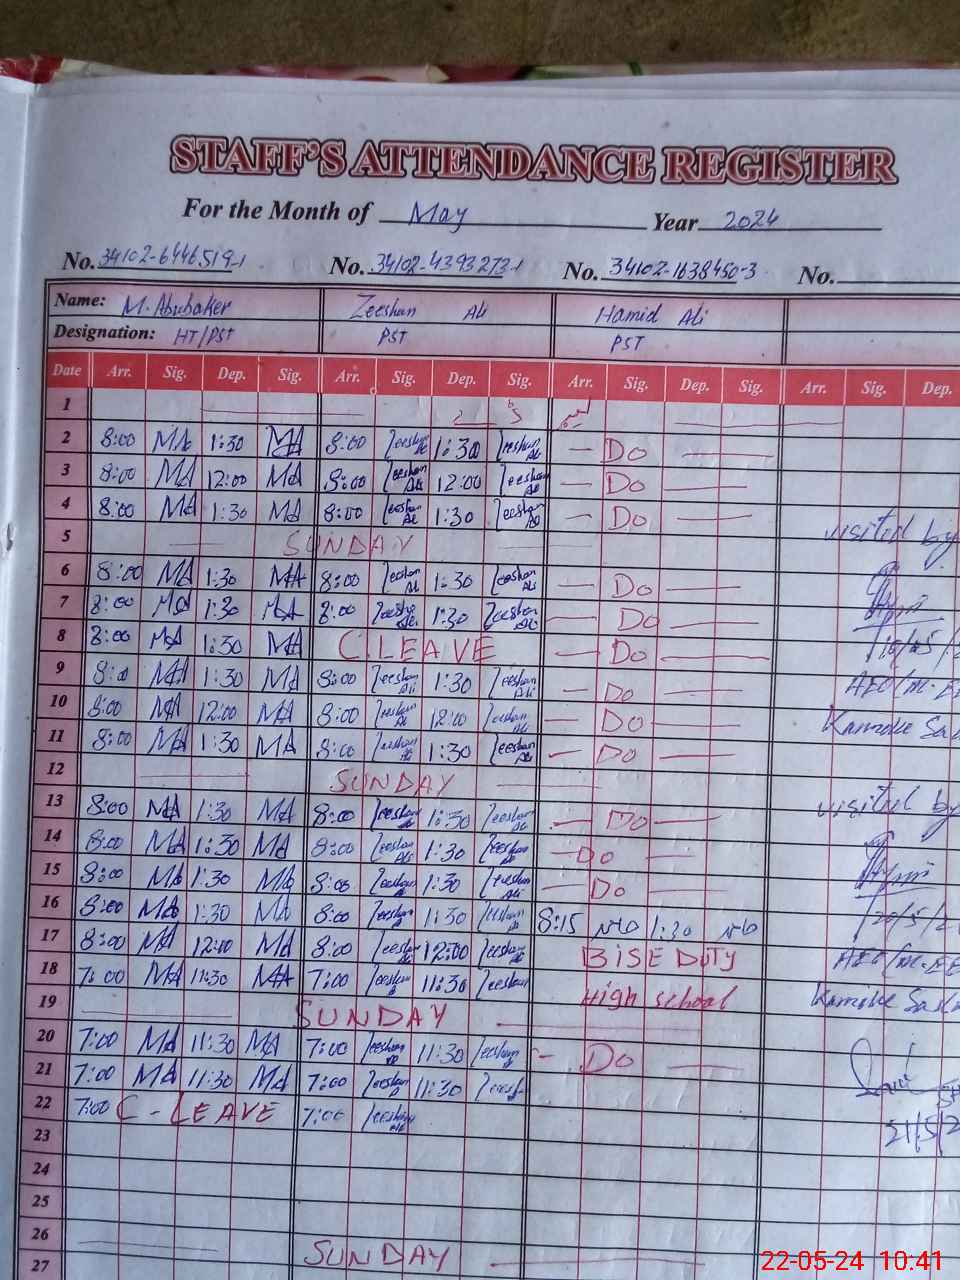 STAFF'S ATTENDANCE REGISTER
For the Month of May Year 2024
No. 34102-6446519-1 No. 34102-4393273-1 No. 34102-1638450-3 No.
Name: M. Abubaker Zeeshan Ali Hamid Ali
Designation: HT/PST PST PST
Date Arr. Sig. Dep. Sig. Arr. Sig. Dep. Sig. Arr. Sig. Dep. Sig. Arr. Sig. Dep.
1
2 8:00 MA 1:30 MA 8:00 Zeeshan Ali 1:30 Zeeshan Ali — Do —
3 8:00 MA 12:00 MA 8:00 Zeeshan Ali 12:00 Zeeshan Ali — Do —
4 8:00 MA 1:30 MA 8:00 Zeeshan Ali 1:30 Zeeshan Ali — Do —
5 SUNDAY visited by
6 8:00 MA 1:30 MA 8:00 Zeeshan Ali 1:30 Zeeshan Ali — Do —
7 8:00 MA 1:30 MA 8:00 Zeeshan Ali 1:30 Zeeshan Ali — Do —
8 8:00 MA 1:30 MA C.LEAVE — Do —
9 8:00 MA 1:30 MA 8:00 Zeeshan Ali 1:30 Zeeshan Ali — Do — AEO/M-EE
10 8:00 MA 12:00 MA 8:00 Zeeshan Ali 12:00 Zeeshan Ali — Do — Kamoke
11 8:00 MA 1:30 MA 8:00 Zeeshan Ali 1:30 Zeeshan Ali — Do —
12 SUNDAY
13 8:00 MA 1:30 MA 8:00 Zeeshan Ali 1:30 Zeeshan Ali — Do — visited by
14 8:00 MA 1:30 MA 8:00 Zeeshan Ali 1:30 Zeeshan Ali — Do —
15 8:00 MA 1:30 MA 8:00 Zeeshan Ali 1:30 Zeeshan Ali — Do —
16 8:00 MA 1:30 MA 8:00 Zeeshan Ali 1:30 Zeeshan Ali 8:15 1:30
17 8:00 MA 12:00 MA 8:00 Zeeshan Ali 12:00 Zeeshan Ali BISE DUTY AEO/M-EE
18 7:00 MA 11:30 MA 7:00 Zeeshan 11:30 Zeeshan High school Kamoke
19 SUNDAY
20 7:00 MA 11:30 MA 7:00 Zeeshan 11:30 Zeeshan — Do —
21 7:00 MA 11:30 MA 7:00 Zeeshan 11:30 Zeeshan
22 7:00 C-LEAVE 7:00 Zeeshan Ali
23 21/5/2
24
25
26 SUNDAY
27
22-05-24 10:41